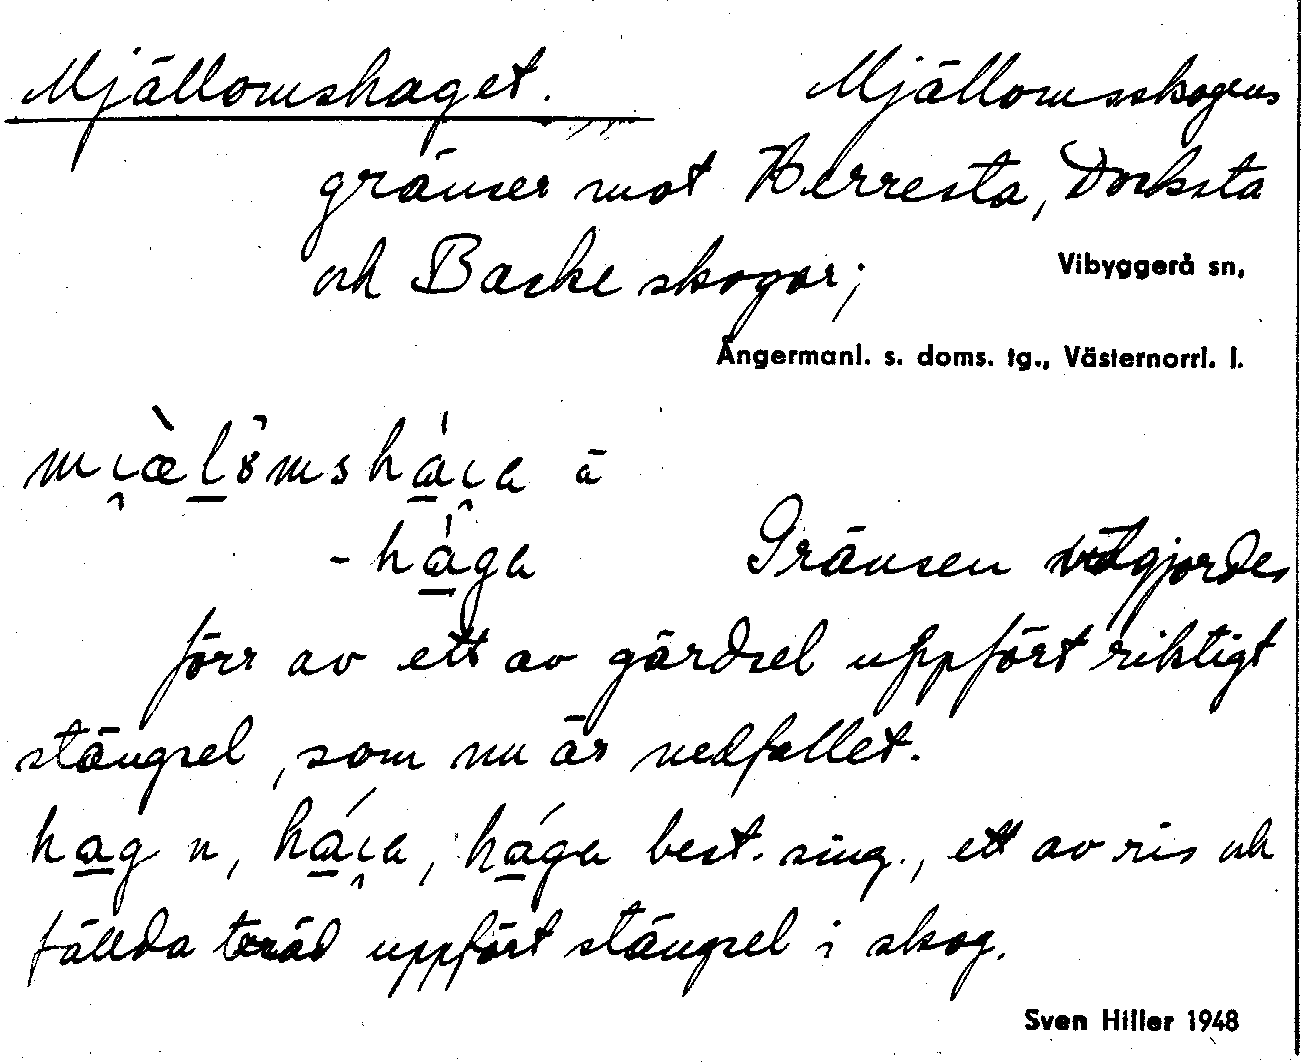 Mjällomshaget. Mjällomsskogens
gränser mot Herresta, Docksta
och Backe skogor;
Vibyggerå sn,
Ångermanl. s. doms. tg., Västernorrl. l.
å
-hága Gränsen utgjordes
förr av ett av gärdsel uppfört riktigt
stängsel, som nu är nedfallet.
hag n, háı̯a, hága best. sing., ett av ris och
fällda träd uppfört stängsel i skog.
Sven Hiller 1948